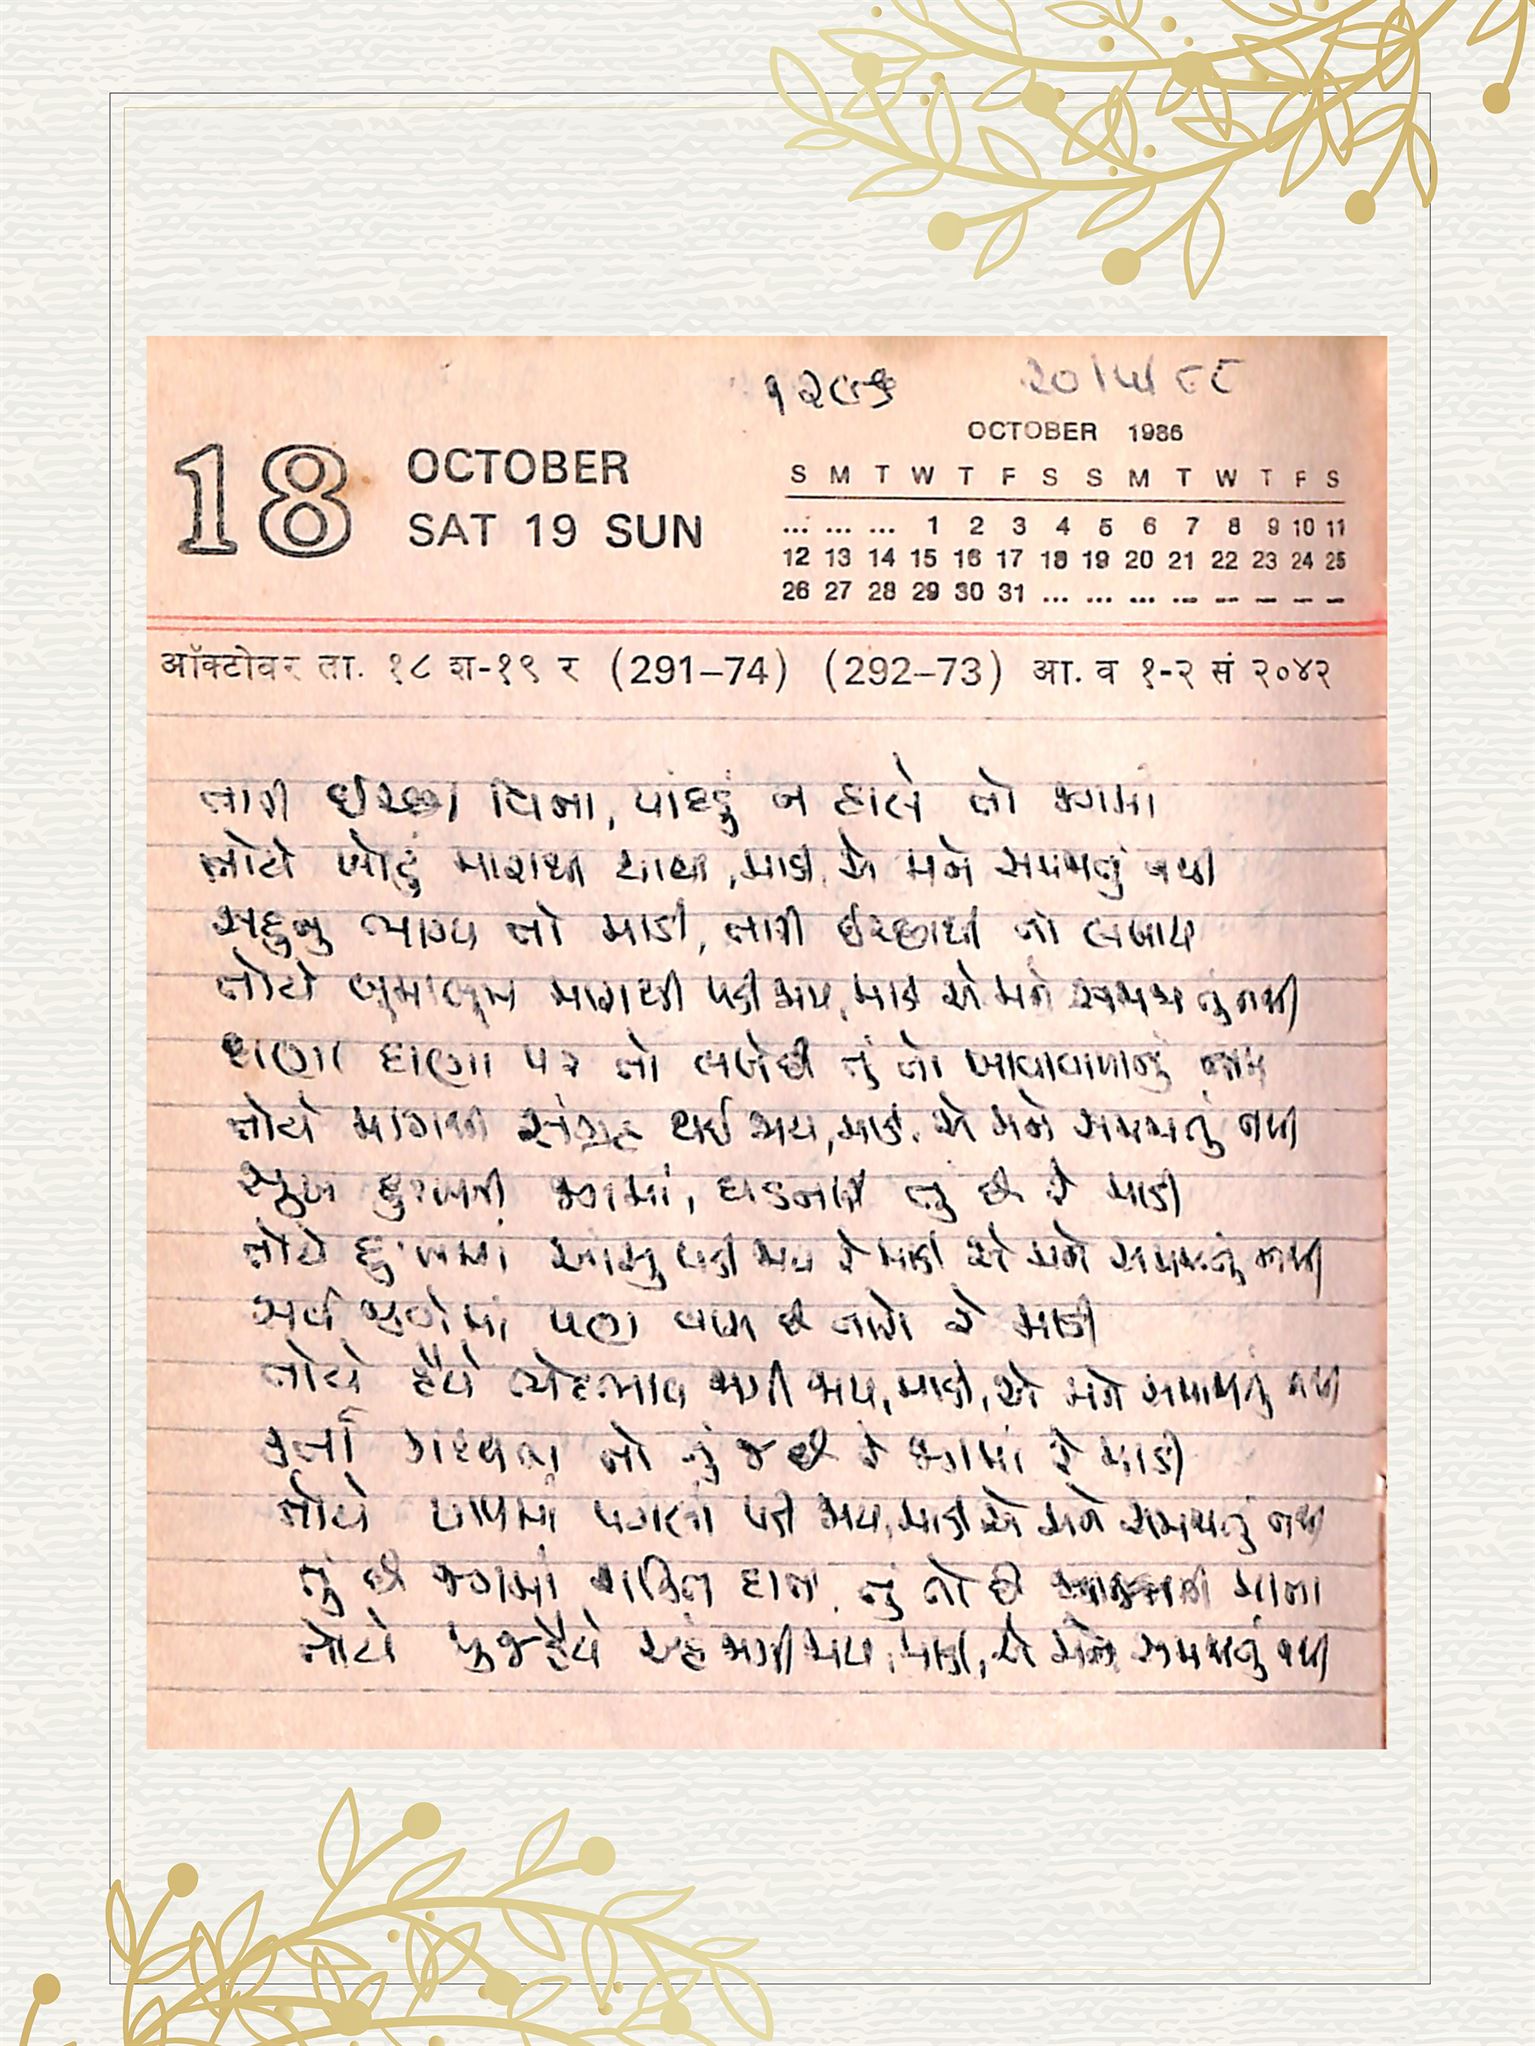 ૧૨૭૬ ૨૦/૫/૮૮
18 OCTOBER
SAT 19 SUN
OCTOBER 1986
S M T W T F S S M T W T F S
... ... ... 1 2 3 4 5 6 7 8 9 10 11
12 13 14 15 16 17 18 19 20 21 22 23 24 25
26 27 28 29 30 31 ... ... ... ... ... ... ... ...
ऑक्टोबर ता. १८ श-१९ र (291–74) (292–73) आ. व १-२ सं २०४२
તારી ઈચ્છા વિના, પાંદડું ન હાલે તો જગમાં
તોયે ખોટું મારાથી થાયે, માડી, એ મને સમજાતું નથી
સહુનુ ભાગ્ય તો માડી, તારી ઈચ્છાથી તો લખાય
તોયે બૂમાબૂમ મારાથી પડી જાય, માડી એ મને સમજાતું નથી
દાણા દાણા પર તો લખેછે તું તો ખાવાવાળાનું નામ
તોયે મારાથી સંગ્રહ થઈ જાય, માડી, એ મને સમજાતું નથી
સુખ દુઃખની જગમાં, ઘડનારી તું છે રે માડી
તોયે દુઃખમાં આંસુ પડી જાય રે માડી એ મને સમજાતું નથી
સર્વ જીવોમાં પણ વાસ છે તારો રે માડી
તોયે હૈયે ભેદભાવ જાગી જાય, માડી, એ મને સમજાતું નથી
કર્તા કારવતા તો તું જ છે રે જગમાં રે માડી
તોયે પાપમાં પગલાં પડી જાય, માડી એ મને સમજાતું નથી
તું છે જગમાં શક્તિ દાતા, તું તો છે માતા
તોયે મુજહૈયે અહં જાગી જાય, માડી, એ મને સમજાતું નથી